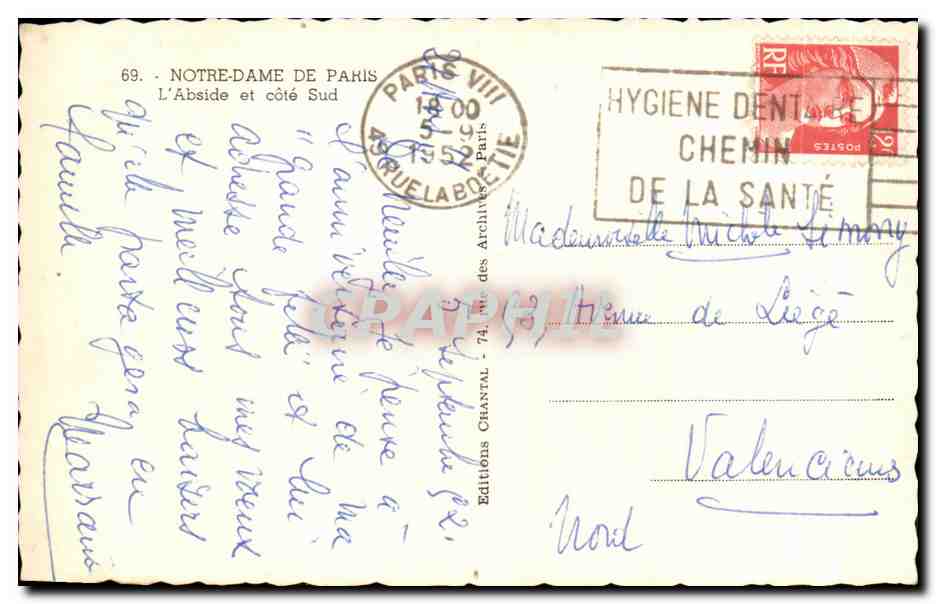 69. - NOTRE-DAME DE PARIS
L'Abside et côté Sud
PARIS VIII
18 00
5 -9
1952
49 RUE LA BOETIE
HYGIENE DENTAIRE
CHEMIN
DE LA SANTÉ
RF
POSTES
12F
Editions CHANTAL - 74, rue des Archives - Paris
CPAPHIL
5 Septembre 52.
Je pense à
l'anniversaire de ma
"Grande fille" et lui
adresse tous mes vœux
et meilleurs baisers
qu'elle partagera en
famille
Mademoiselle Michèle Simony
53 Avenue de Liège
Valenciennes
Nord